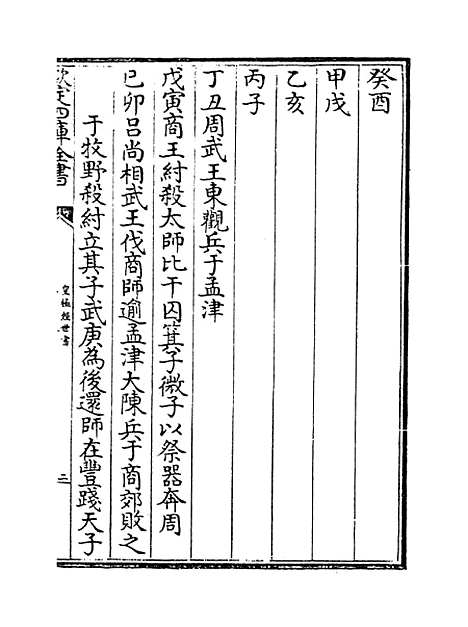 癸酉
甲戌
乙亥
丙子
丁丑周武王東觀兵于孟津
戊寅商王紂殺太師比干囚箕子微子以祭器奔周
已卯吕尚相武王伐商師逾孟津大陳兵于商郊敗之
于牧野殺紂立其子武庚為後還師在豐踐天子
欽定四庫全書
皇極經世書
三